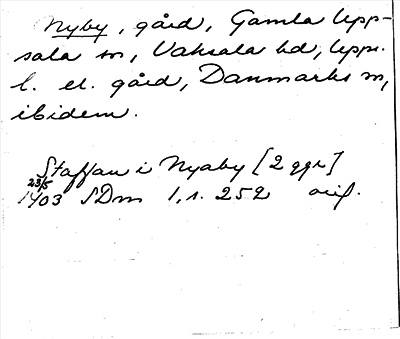 Nyby, gård, Gamla Upp-
sala sn, Vaksala hd, Upps.
l. el. gård, Danmarks sn,
ibidem.
Staffan i Nyaby [2 ggr]
23/5
1403 SDns 1, s. 252 orig.